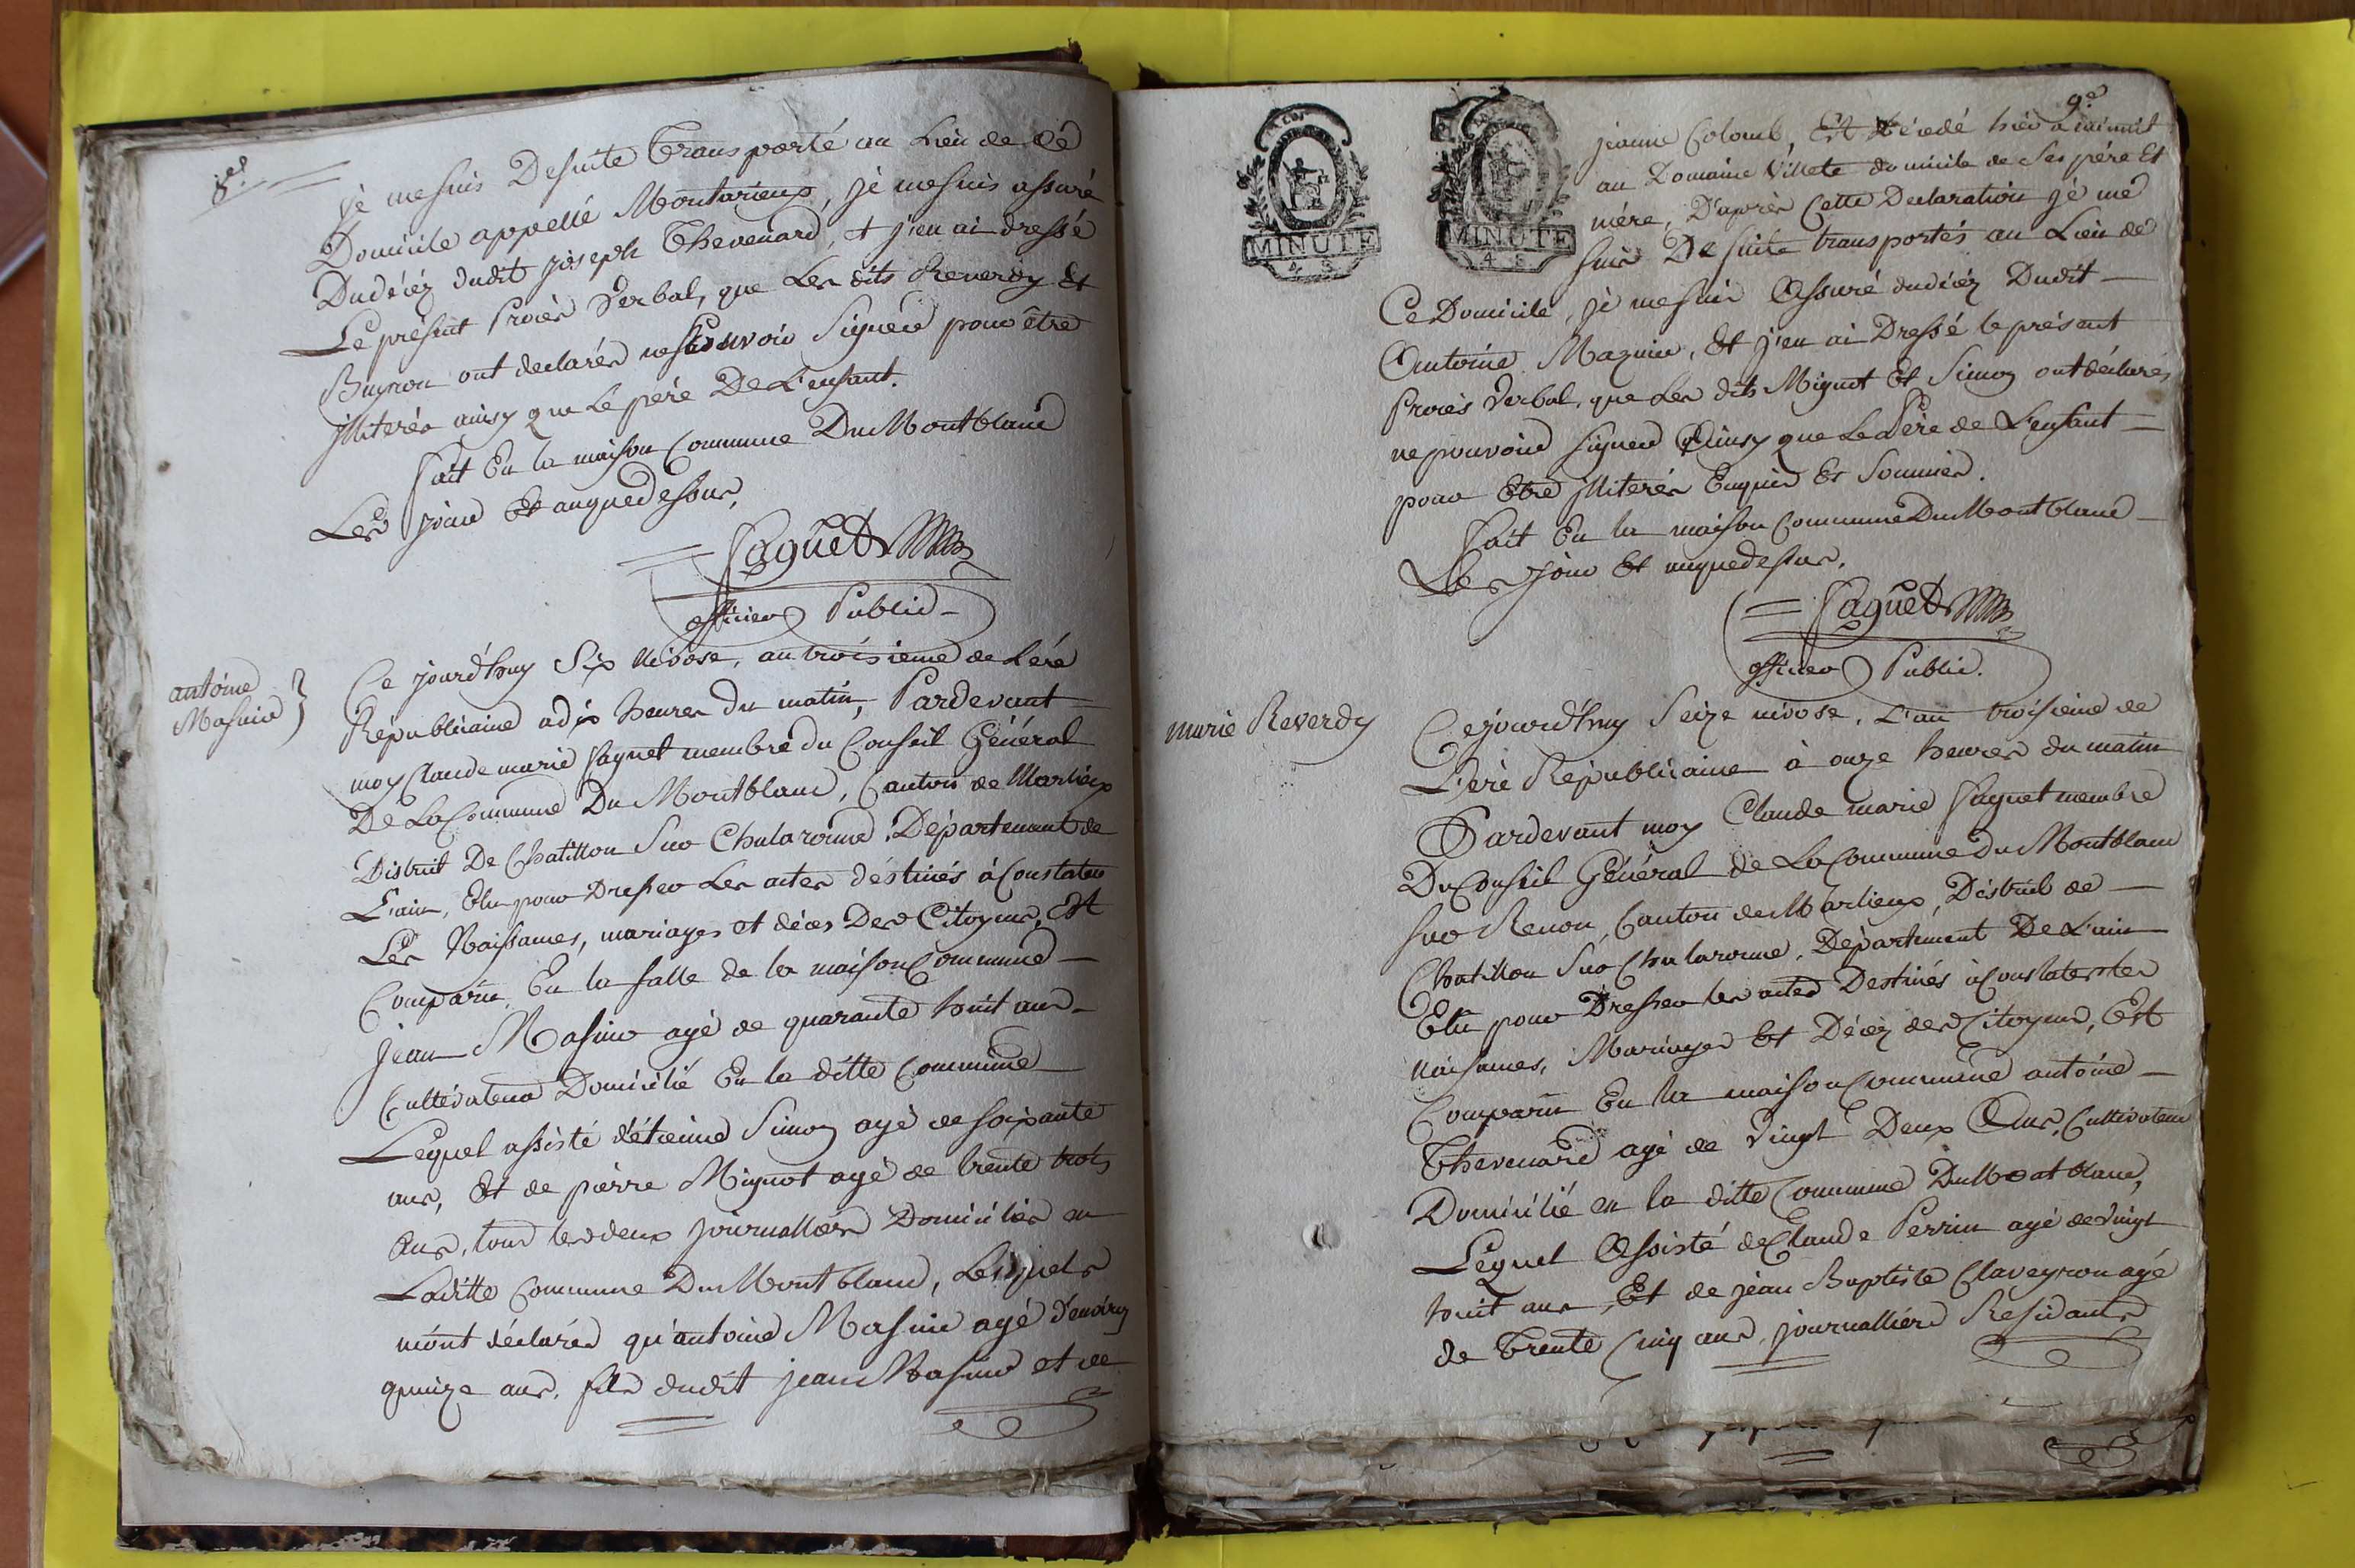 8.e
je me suis De suite Transporté au Lieu de Ce
Domicile appellé Montarieux, je me suis assuré
Du décéz dudit joseph Thevenard, et j'en ai dressé
Le présent Procès Verbal, que Les dits Reverdy Et
Buynon ont declarés ne Pouvoir Signer pour être
jlliterés ainsy que Le père De L'enfant.
fait En la maison Commune Du Montblanc
Les jour Et an que dessus,
Saguet
officier Public
antoine
Masuir
Ce jourd'huy Six Nivose, an troisieme de L'éré
Républicaine a dix heures du matin, Pardevant
moy Claude marie saguet membre du Conseil Général
De La Commune Du Montblanc, Canton de Marlieux
District De Chatillon Sur Chalaronne, Département de
L'ain, Elu pour Dresser Les actes déstinés à Constater
Les Naissances, mariages et décès Des Citoyens, Est
Comparu, En la salle de la maison Commune
jean Masuir agé de quarante huit ans
Cultivateur Domicilié En la ditte Commune
Lequel assisté d'étienne Simon agé de soixante
ans, Et de pierre Mignot agé de trente trois
ans, tous les deux journalliers Domiciliés en
Laditte Commune Du Montblanc, Lesquels
m'ont déclarés qu'antoine Masuir agé d'environ
quinze ans, fils dudit jean Masuir et de
9.e
jeanne Colomb, Est Décédé hier a minuit
au Domaine Villete domicile de Ses père Et
mére, D'aprèr Cette Declaration jé me
suis De suite transportés au Lieu de
Ce Domicile, je me suis Assuré du décéz Dudit
Antoine Mazuir, Et j'en ai Dressé le présent
Procès Verbal, que Les dits Mignot Et Simon ont déclarés
ne pouvoir signer Ainsy que Le Père de L'enfant
pour Etre jlliterés Enquis Et Sommés.
fait En la maison Commune Du Montblanc
Les jour Et an que dessus.
Saguet
officier Public.
MINUTE
4 S
MINUTE
4 S
marie Reverdy
Ce jourd'huy Seize nivose, L'an troisieme de
L'éré Républicaine à onze heures du matin
Pardevant moy Claude marie saguet membre
Du Conseil Général de La Commune Du Montblanc
sur Renon, Canton de Marlieux, District de
Chatillon Sur Chalaronne, Département De L'ain
Elu pour Dresser les actes Destinés à Constater les
naissances, Mariages Et Décéz des Citoyens, Est
Comparu En la maison Commune antoine
Thevenard agé de Vingt Deux Ans, Cultivateur
Domicilié en la ditte Commune Du Montblanc,
Lequel Assisté de Claude Perrin agé de Vingt
huit ans, Et de jean Baptiste Claveyron agé
de Trente Cinq ans, journalliers Residants